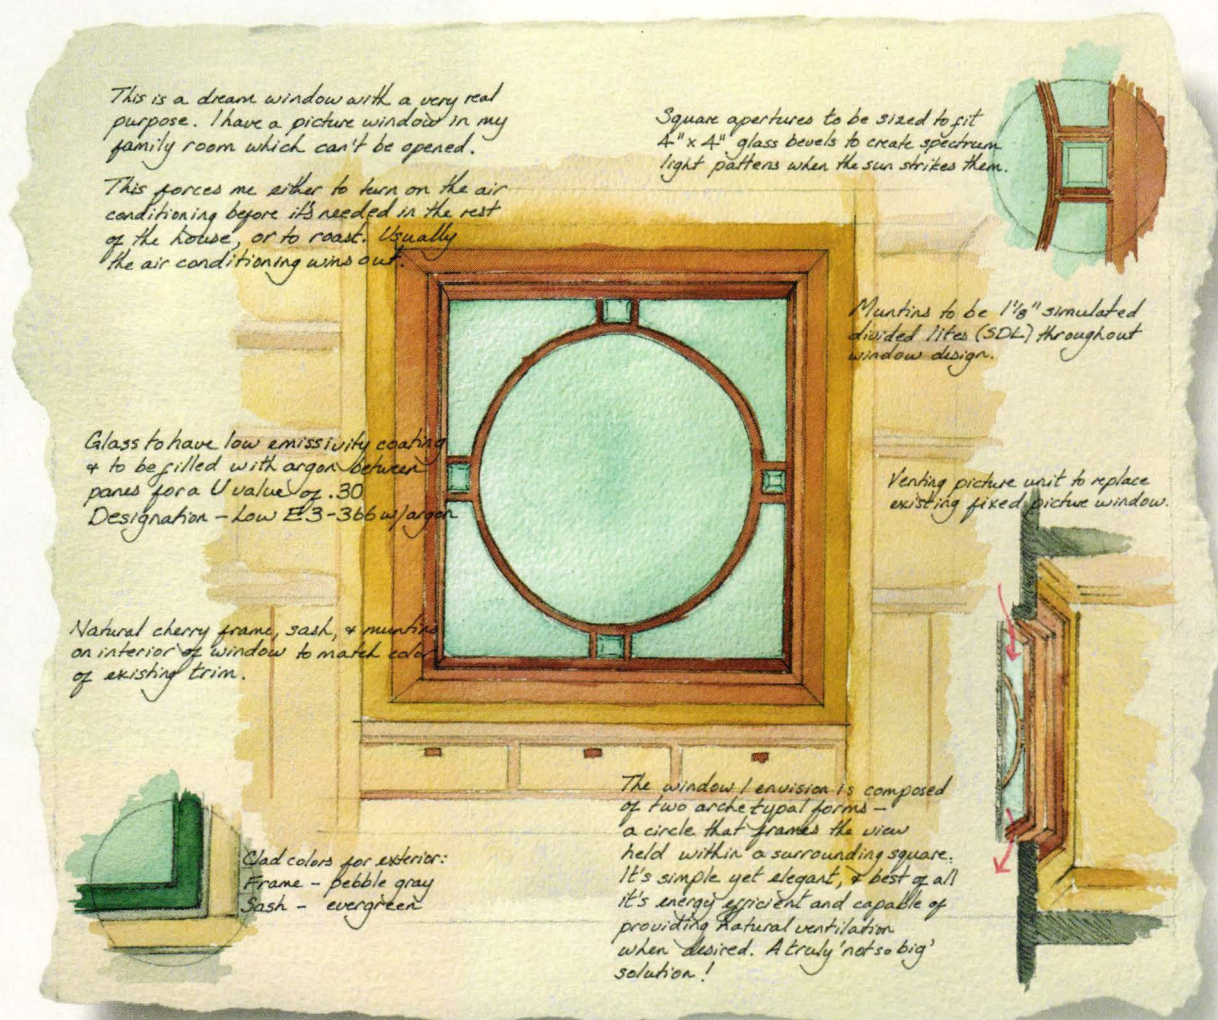 This is a dream window with a very real
purpose. I have a picture window in my
family room which can't be opened.
This forces me either to turn on the air
conditioning before it's needed in the rest
of the house, or to roast. Usually
the air conditioning wins out.
Square apertures to be sized to fit
4" x 4" glass bevels to create spectrum
light pattens when the sun strikes them.
Muntins to be 1⅛" simulated
divided lites (SDL) throughout
window design.
Glass to have low emissivity coating
& to be filled with argon between
panes for a U value of .30
Designation - Low E3-366 w/argon
Venting picture unit to replace
existing fixed picture window.
Natural cherry frame, sash, & muntins
on interior of window to match color
of existing trim.
Clad colors for exterior:
Frame - pebble gray
Sash - evergreen
The window I envision is composed
of two archetypal forms -
a circle that frames the view
held within a surrounding square.
It's simple yet elegant, & best of all
it's energy efficient and capable of
providing natural ventilation
when desired. A truly 'not so big'
solution!